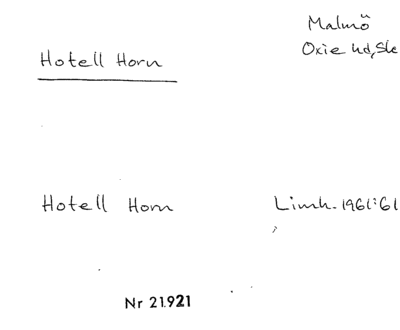 Malmö
Oxie hd, Sk
Hotell Horn
Hotell Horn Limh. 1961:61
Nr 21.921